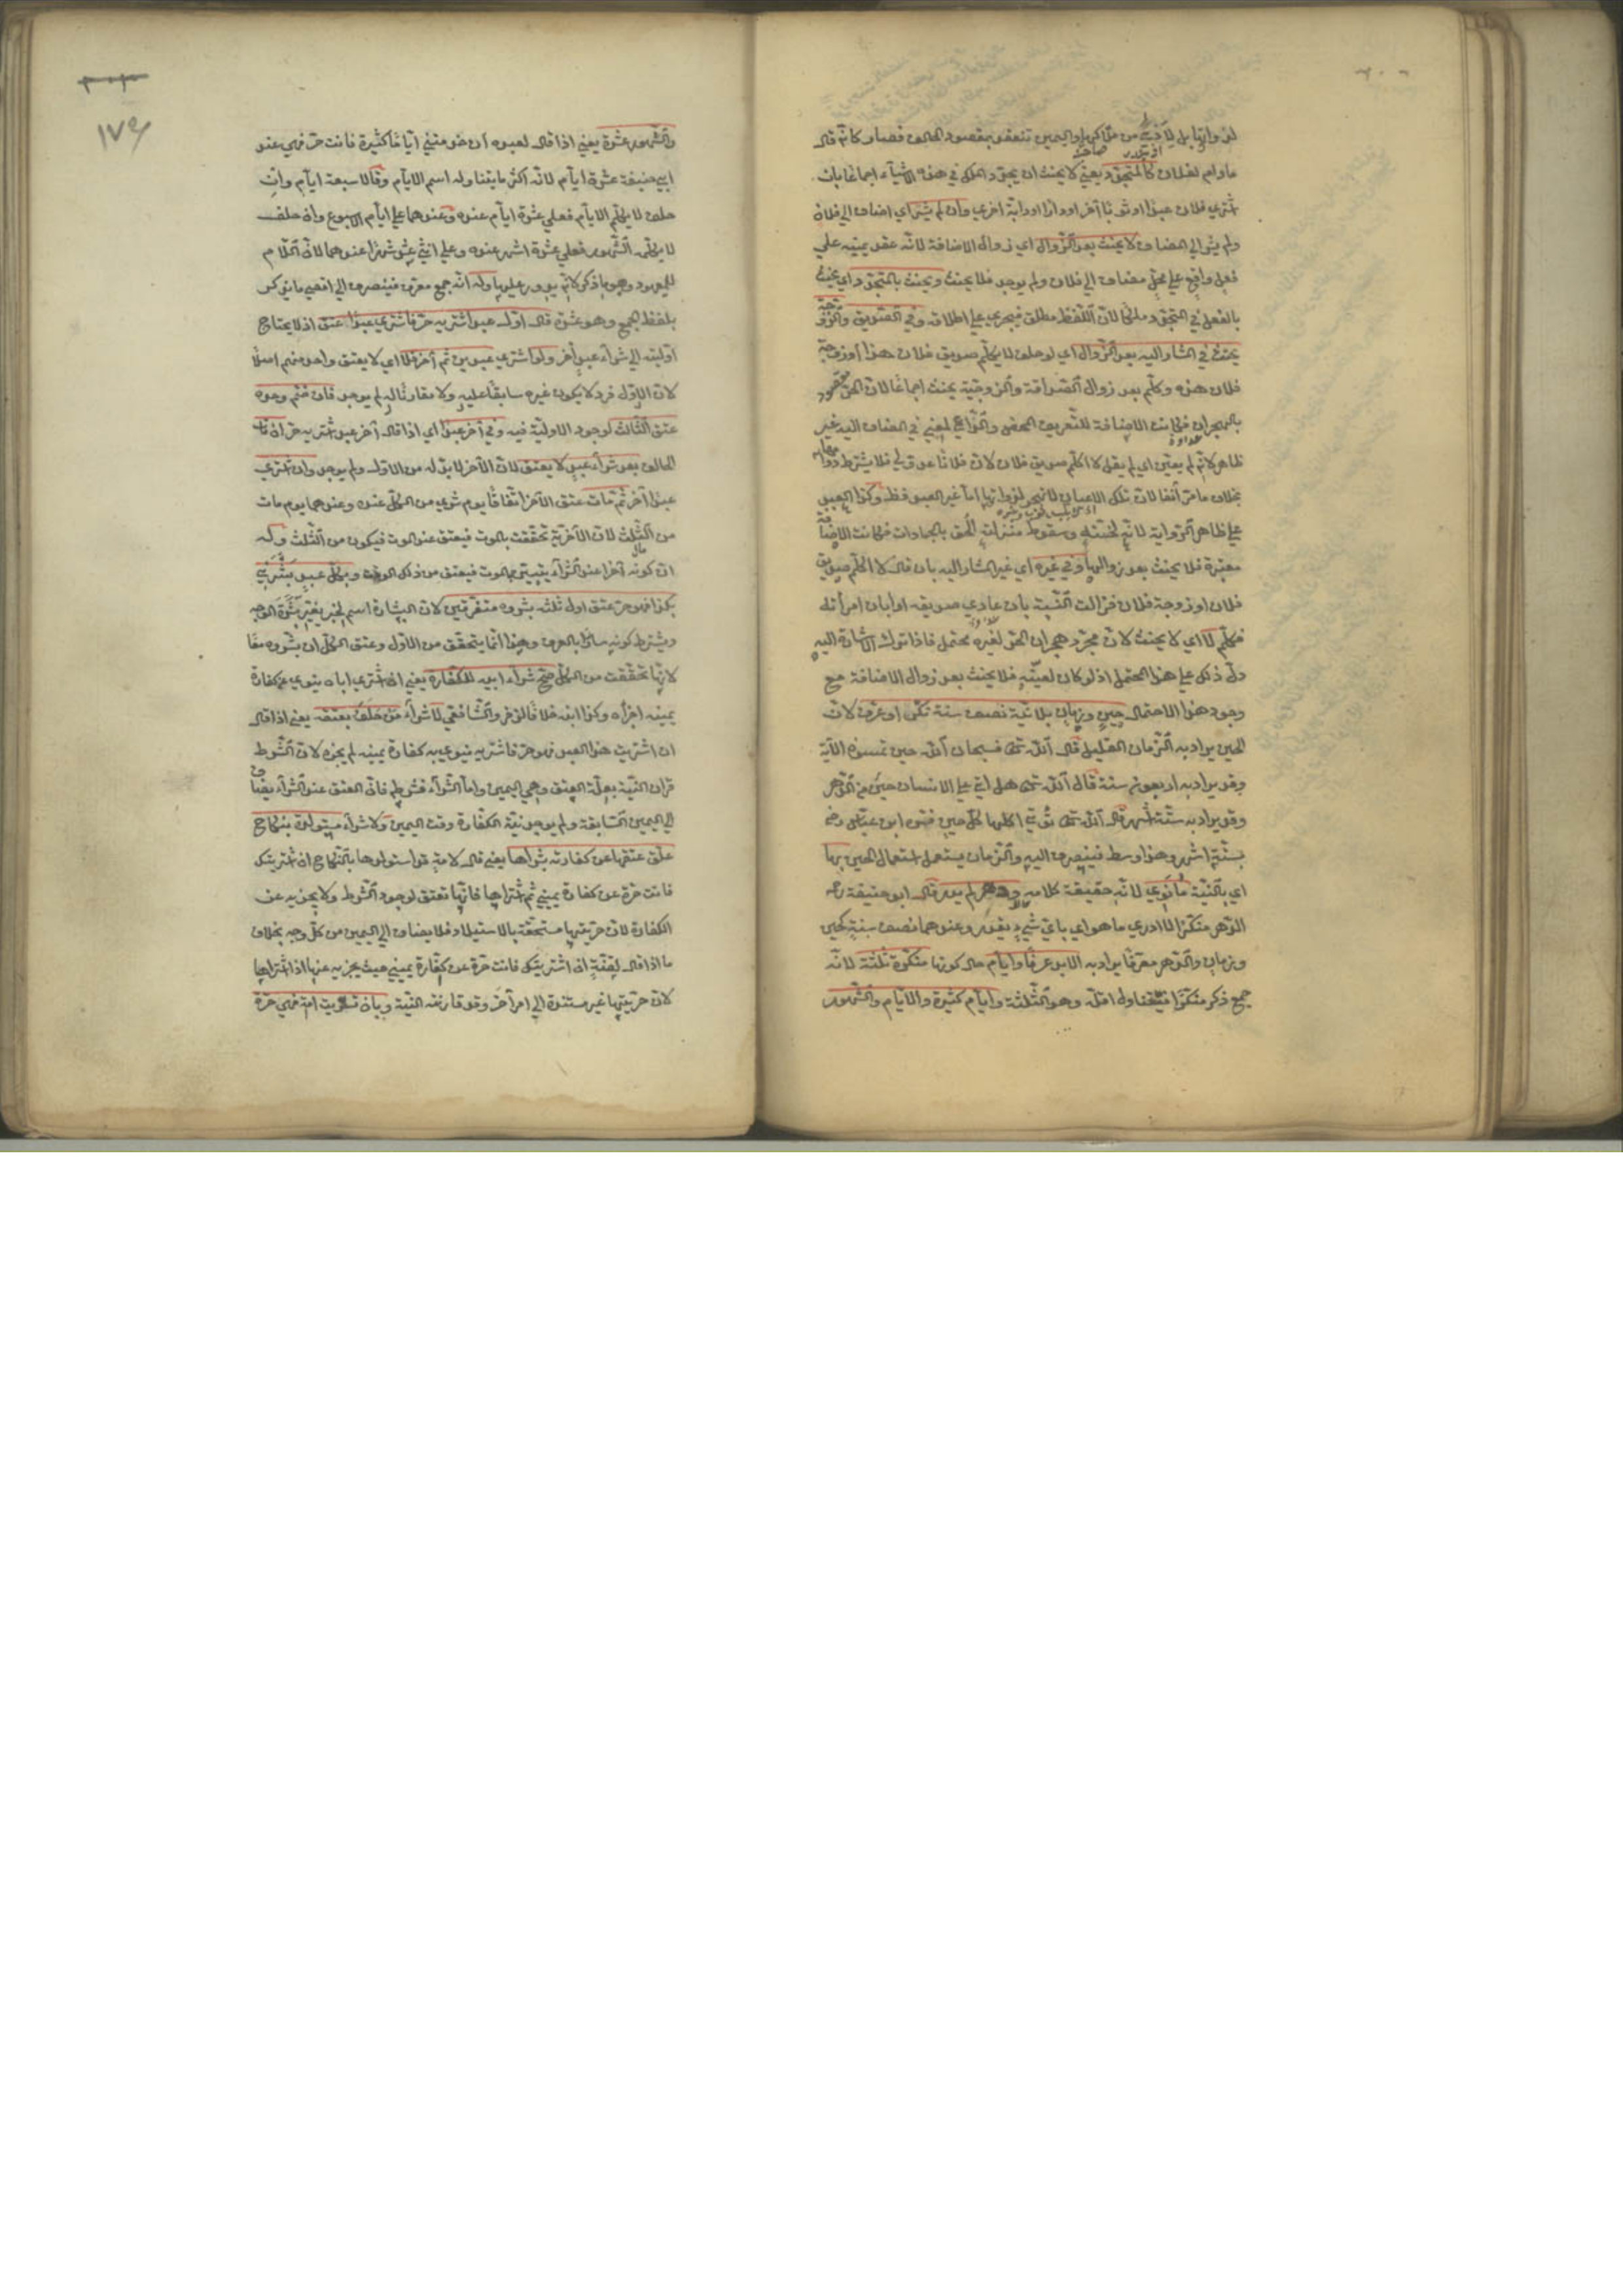 لذواتها بل لأذى من ملاكها واليمين تنعقد بمقصود الحالف فصار كأنه قال
ما دام لفلان كالمتجدد يعني لا يحنث ان يجدد الملك في هذه الاشياء اجماعا بان
اشترى فلان عبدا او ثوبا آخر او دارا او دابة اخرى وان لم يشر اي اضاف الى فلان
ولم يشر الى المضاف لا يحنث بعد الزوال اي زوال الاضافة لانه عقد يمينه على
فعل واقع على محل مضاف الى فلان ولم يوجد فلا يحنث ويحنث بالمتجدد اي يحنث
بالفعل في المتجدد ملكا لان اللفظ مطلق فيجري على اطلاقه وفي الصديق والزوجة
يحنث في المشار اليه بعد الزوال اي لو حلف لا يكلم صديق فلان هذا او زوجة
فلان هذه وكلم بعد زوال الصداقة والزوجية يحنث اجماعا لان الحر مقصود
بالهجران فكانت الاضافة للتعريف المحض والداعي لمعنى في المضاف اليه غير
ظاهر لانه لم يعين اي لم يقل لا اكلم صديق فلان لان فلانا عدو لي فلا يشترط دوامها
بخلاف ما مر آنفا لان تلك الاعيان لا تهجر لذواتها اما غير العبد فظ وكذا العبد
على ظاهر الرواية لانه لخسته وسقوط منزلته الحق بالجمادات فكانت الاضافة
معتبرة فلا يحنث بعد زوالها وفي غيره اي غير المشار اليه بان قال لا اكلم صديق
فلان او زوجة فلان فزالت النسبة بان عادى صديقه او ابان امرأته
فكلم لا اي لا يحنث لان مجرد هجران الحر لغيره محتمل فاذا ترك الاشارة اليه
دل ذلك على هذا المحتمل اذ لو كان لعينه فلا يحنث بعد زوال الاضافة مع
وجود هذا الاحتمال حين وزمان بلا نية نصف سنة نكر او عرف لان
الحين يراد به الزمان القليل قال الله تعالى فسبحان الله حين تمسون الآية
وقد يراد به اربعون سنة قال الله تعالى هل اتى على الانسان حين من الدهر
وقد يراد به ستة اشهر قال الله تعالى تؤتي اكلها كل حين فسر ابن عباس رضه
بستة اشهر وهذا وسط فينصرف اليه والزمان يستعمل استعمال الحين بها
اي بالنية ما نوى لانه حقيقة كلامه ودهر لم يدر قال ابو حنيفة رح
الدهر منكرا لا ادري ما هو اي باي شيء يقدر وعندهما نصف سنة كحين
وزمان والدهر معرفا يراد به الابد عرفا وايام حال كونها منكرة ثلثة لانه
جمع ذكر منكرا فيتناول اقله وهو الثلثة وايام كثيرة والايام والشهور
١٧٩
والشهور عشرة يعني اذا قال لعبده ان خدمتني اياما كثيرة فانت حر فهي عند
ابي حنيفة عشرة ايام لانه اكثر ما يتناوله اسم الايام وقالا سبعة ايام وان
حلف لا يكلم الايام فعلى عشرة ايام عنده وعندهما على ايام الاسبوع وان حلف
لا يكلمه الشهور فعلى عشرة اشهر عنده وعلى اثني عشر شهرا عندهما لان اللام
للمعهود وهو ما ذكر لانه يدور عليها وله انه جمع معرف فينصرف الى اقصى ما يذكر
بلفظ الجمع وهو عشرة قال اول عبد اشتريه حر فاشترى عبدا عتق اذ لا يحتاج
اوليته الى شراء عبد آخر ولو اشترى عبدين ثم آخر فلا اي لا يعتق واحد منهم اصلا
لان الاول فرد لا يكون غيره سابقا عليه ولا مقارنا له لم يوجد فان ضم وحده
عتق الثالث لوجود الاولية فيه وفي آخر عبد اي اذا قال آخر عبد اشتريه حر ان مات
الحالف بعد شراء عبد لا يعتق لان الآخر لا بد له من الاول ولم يوجد وان اشترى
عبدا آخر ثم مات عتق الآخر اتفاقا يوم شري من الكل عنده وعندهما يوم مات
من الثلث لان الآخرية تحققت بالموت فيعتق عند الموت فيكون من الثلث وله
ان كونه آخرا عند الشراء يتبين بالموت فيعتق من ذلك الوقت وبكل عبد بشرني
بكذا فهو حر عتق اول ثلثة بشروه متفرقين لان البشارة اسم لخبر يغير بشرة الوجه
ويشترط كونه سارا بالعرف وهذا انما يتحقق من الاول وعتق الكل ان بشروه معا
لانها تحققت من الكل صح شراء ابيه للكفارة يعني ان اشترى اباه ينوي عن كفارة
يمينه اجزأه وكذا ابنه خلافا لزفر والشافعي لا شراء من حلف بعتقه يعني اذا قال
ان اشتريت هذا العبد فهو حر فاشتريه ينوي به كفارة يمينه لم يجزه لان الشرط
قران النية بعلة العتق وهي اليمين واما الشراء فشرطه فان العتق عند الشراء يضاف
الى اليمين السابقة ولم يوجد نية الكفارة وقت اليمين ولا شراء مستولدة بنكاح
علق عتقها عن كفارته بشراها يعني قال لامة قد استولدها بالنكاح ان اشتريتك
فانت حرة عن كفارة يميني ثم اشتراها فانها تعتق لوجود الشرط ولا يجزيه عن
الكفارة لان حريتها مستحقة بالاستيلاد فلا يضاف الى اليمين من كل وجه بخلاف
ما اذا قال لقنة ان اشتريتك فانت حرة عن كفارة يميني حيث يجزيه عنها اذا اشتراها
لان حريتها غير مستندة الى امر آخر وقد قارنته النية وبان تسريت امة فهي حرة